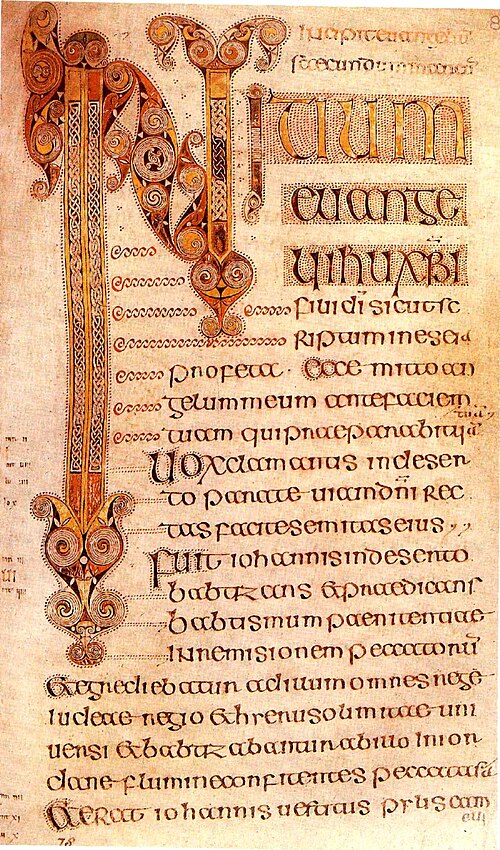 Incipit evangelium
secundum marcum
INITIUM
euange
lii ihu xpi
fili di sicut sc
riptum in eseia
profeta · ecce mitto an
gelum meum ante faciem
tuam qui praeparabit uiā tuā
Uox clamantis in deser
to parate uiam dni rec
tas facite semitas eius ,,
Fuit iohannis in deserto
babtizans & praedicans
babtismum paenitentiae
in remisionem peccatorū
& egrediebatur ad illum omnes rege
iudeae regio & hierusolimitae uni
uersi & babtizabantur ab illo in ior
dane flumine confitentes peccata sua
& erat iohannis uestitus pylis cam
eli